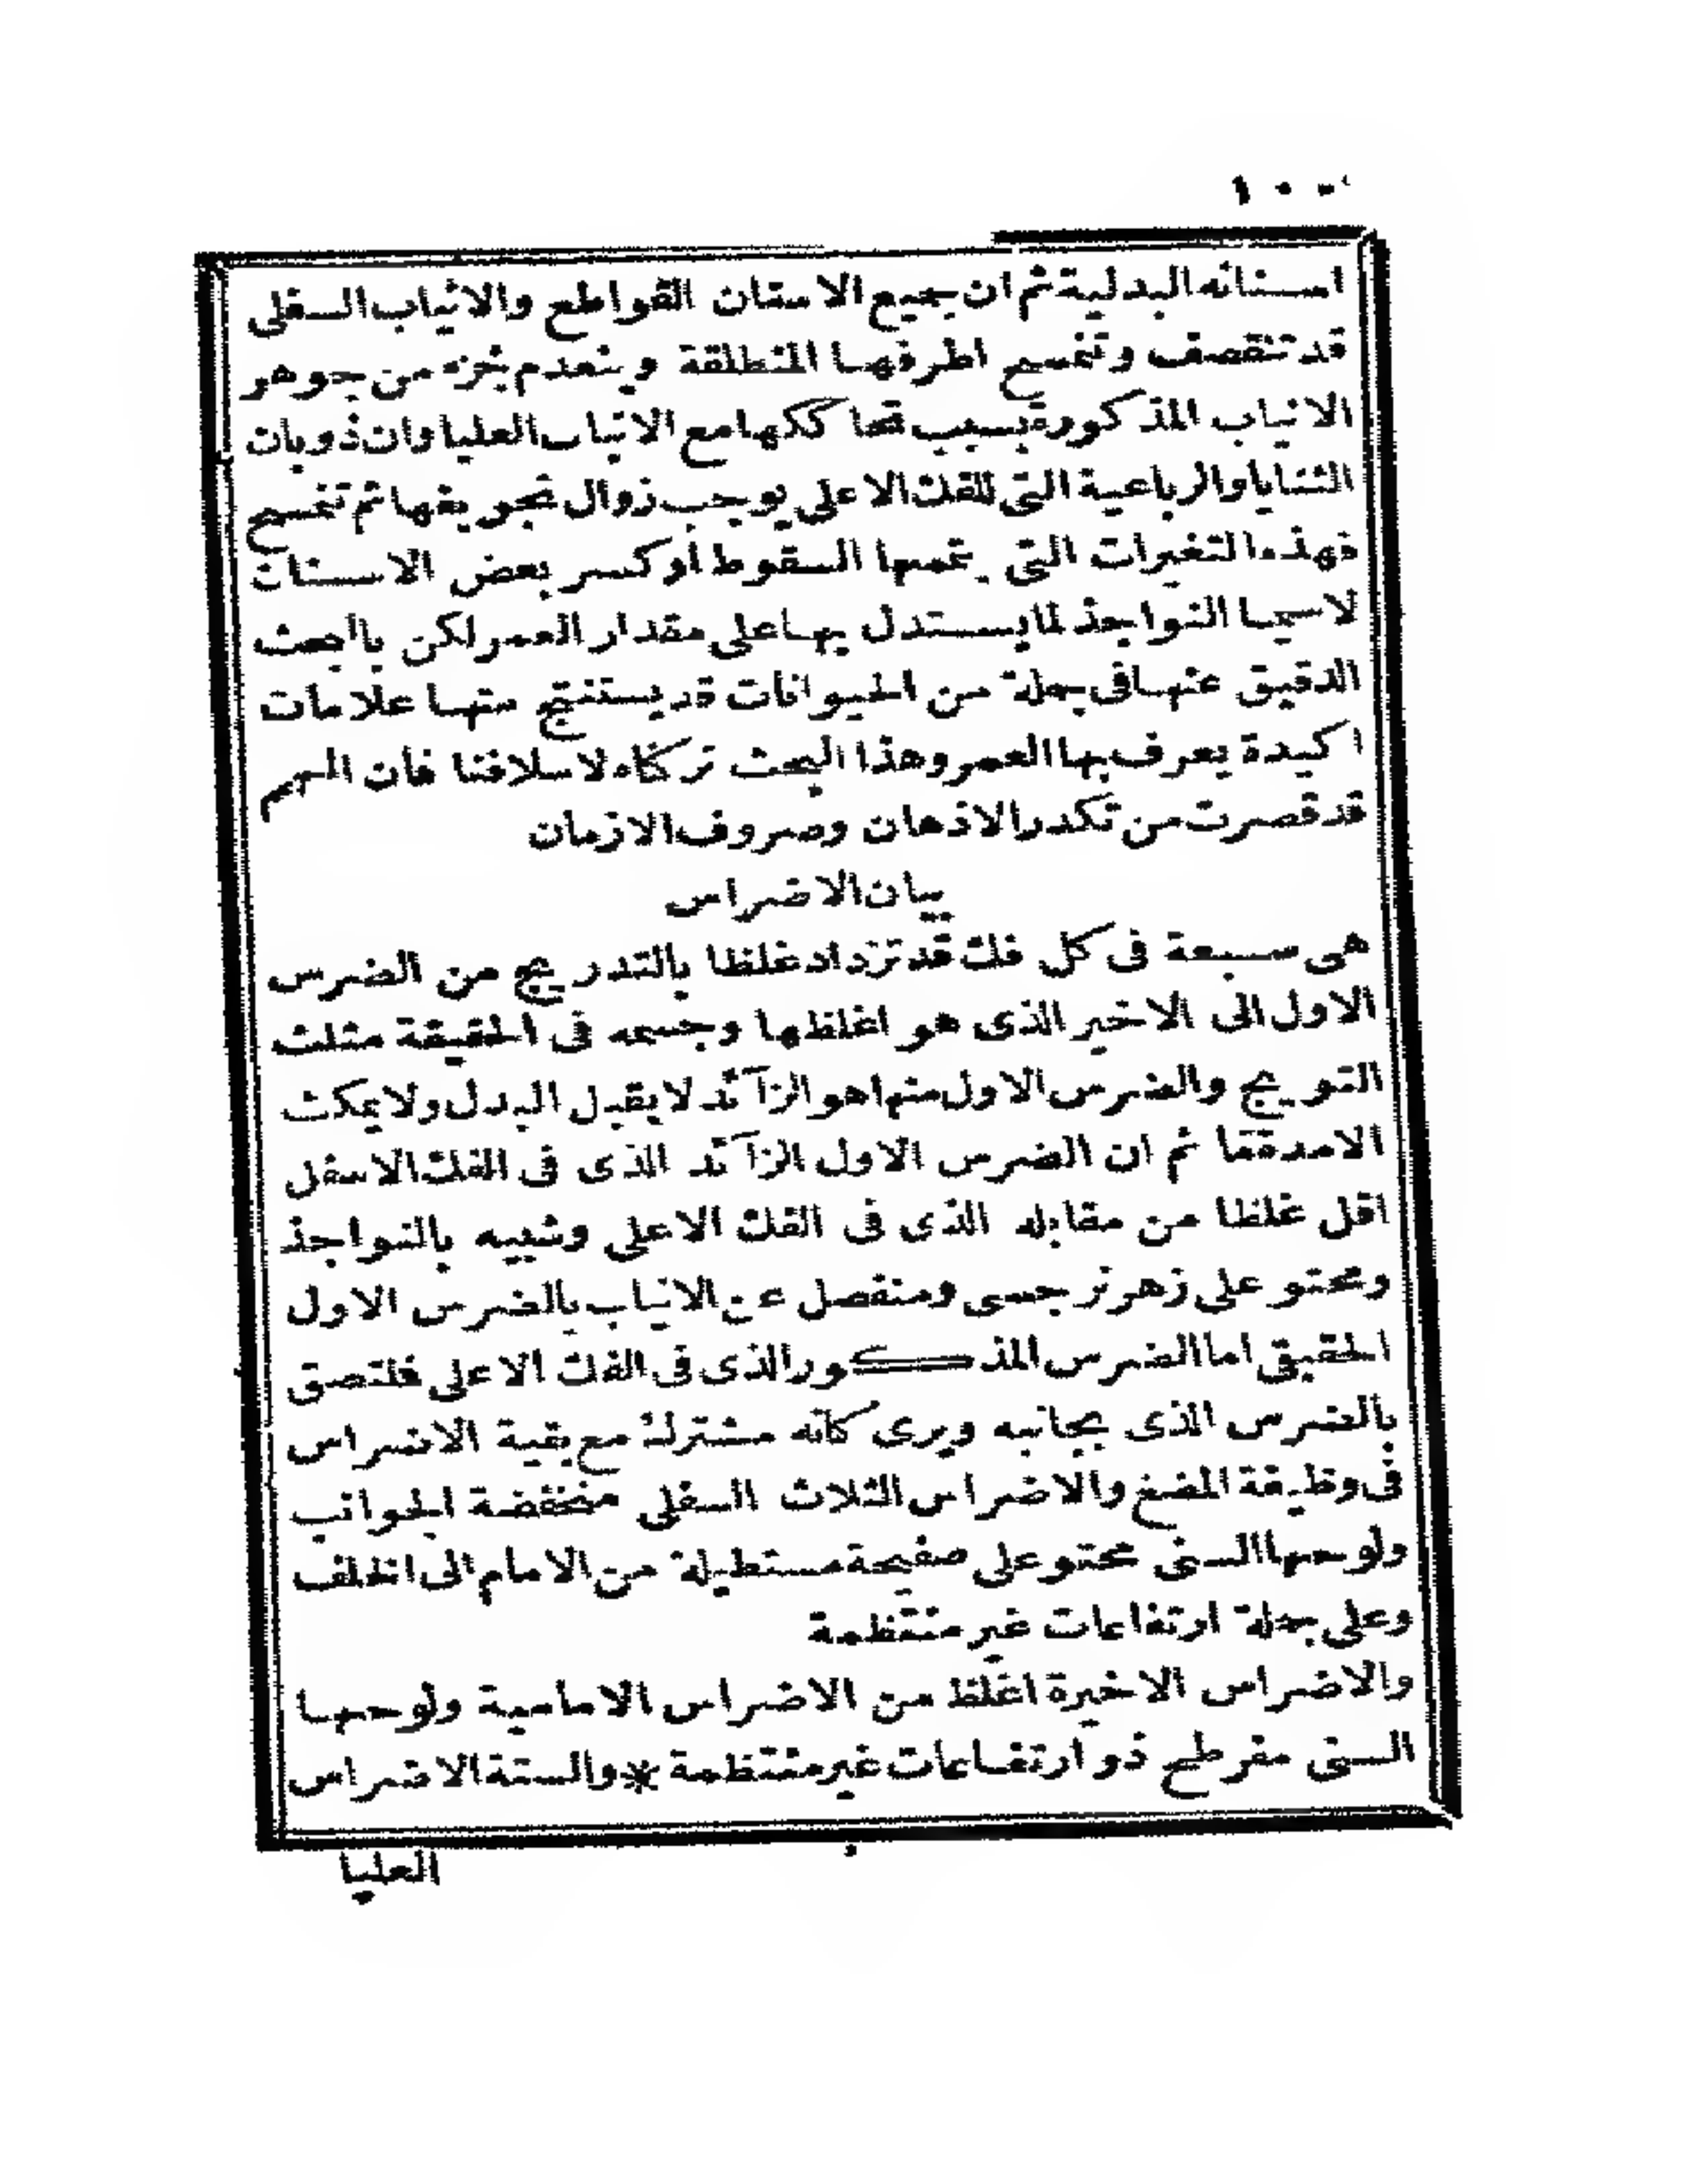 ١٠٠
اسنانه البدلية ثم ان جميع الاسنان القواطع والانياب السفلى
قد تنقصف وتنمسح اطرفها المنطلقة وينعدم جزء من جوهر
الانياب المذكورة بسبب تحاككها مع الانياب العليا وان ذوبان
الثنايا والرباعية التى للفك الاعلى يوجب زوال تجويفها ثم تنمسح
فهذه التغيرات التى يتممها السقوط او كسر بعض الاسنان
لاسيما النواجذ لما يستدل بها على مقدار العمر لكن بالبحث
الدقيق عنها فى جملة من الحيوانات قد يستنتج منها علامات
اكيدة يعرف بها العمر وهذا البحث تركناه لاسلافنا فان الهمم
قد قصرت من تكدر الاذهان وصروف الازمان
بيان الاضراس
هى سبعة فى كل فك قد تزداد غلظا بالتدريج من الضرس
الاول الى الاخير الذى هو اغلظها وجسمه فى الحقيقة مثلث
التويج والضرس الاول منها هو الزآئد لا يقبل البدل ولا يمكث
الا مدة ما ثم ان الضرس الاول الزآئد الذى فى الفك الاسفل
اقل غلظا من مقابله الذى فى الفك الاعلى وشبيه بالنواجذ
ومحتو على زهر نرجسى ومنفصل عن الانياب بالضرس الاول
الحقيقى اما الضرس المذكور الذى فى الفك الاعلى فلتصق
بالضرس الذى بجانبه ويرى كانه مشترك مع بقية الاضراس
فى وظيفة المضغ والاضراس الثلاث السفلى منخفضة الجوانب
ولوحها السنى محتو على صفيحة مستطيلة من الامام الى الخلف
وعلى جملة ارتفاعات غير منتظمة
والاضراس الاخيرة اغلظ من الاضراس الامامية ولوحها
السنى مفرطح ذو ارتفاعات غير منتظمة * والستة الاضراس
العليا